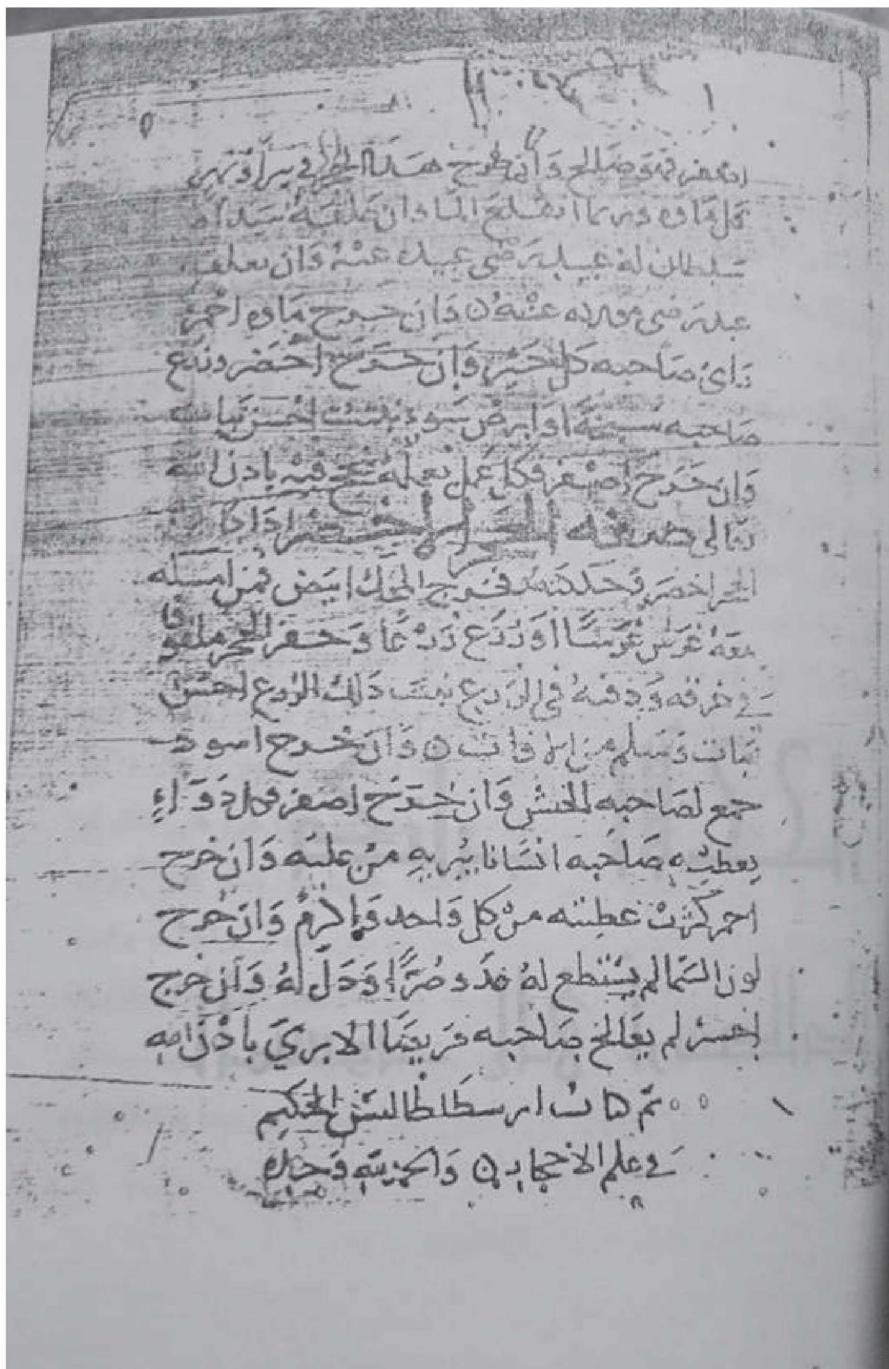 اصفر فهو صالح وان طرح هذا الحجر في بير او نهر
قل ماوه وربما انقطع الما وان علقه
سلطان له عنه وان
عنه وان خرج ماوه احمر
راى صاحبه كل خير وان خرج اخضر وزرع
صاحبه او ارض سو نبتت احسن نبات
وان خرج اصفر فكل عمل يعمله ينجح فيه باذن الله
تعالى صفة الحجر الاخضر اذا كان
الحجر اخضر وحككته فخرج المحك ابيض فمن امسكه
معه غرس غرسا او زرع زرعا وحفر الحجر ملفوفا
في خرقه ودفنه في الزرع نبت ذلك الزرع احسن
نبات وسلم من الافات وان خرج اسود
جمع لصاحبه وان خرج اصفر فكل دواء
يعطيه صاحبه انسانا يبريه من علته وان خرج
احمر كثرت عطيته من كل واحد واكرم وان خرج
لون السما لم يستطع له ضرا وذل له وان خرج
لم يعالج صاحبه مريضا الا بري باذن الله
تم كتاب ارسطاطاليس الحكيم
في علم الاحجار والحمد لله وحده